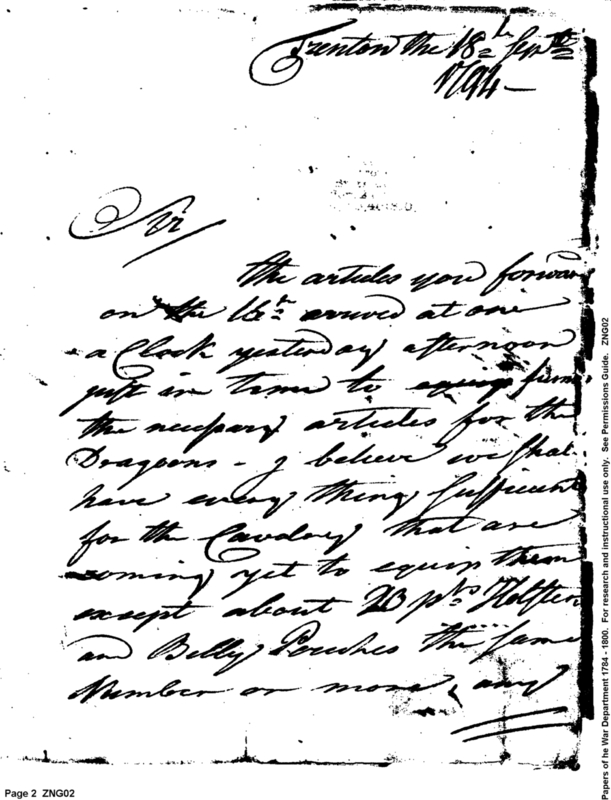 Trenton the 18th Septr
1794 –
Sir/
the articles you forwar
on the 16th arrived at one
a Clock yesterday afternoon
just in time to equip furn
the necessary articles for the
Dragoons – I believe we shal
have every thing sufficient
for the Cavalry that are
coming yet to equip them
except about 20 prs Holster
and Belly Pouches the same
Number or more, any
Page 2 ZNG02
Papers of he War Department 1784 - 1800. For research and instructional use only. See Permissions Guide. ZNG02